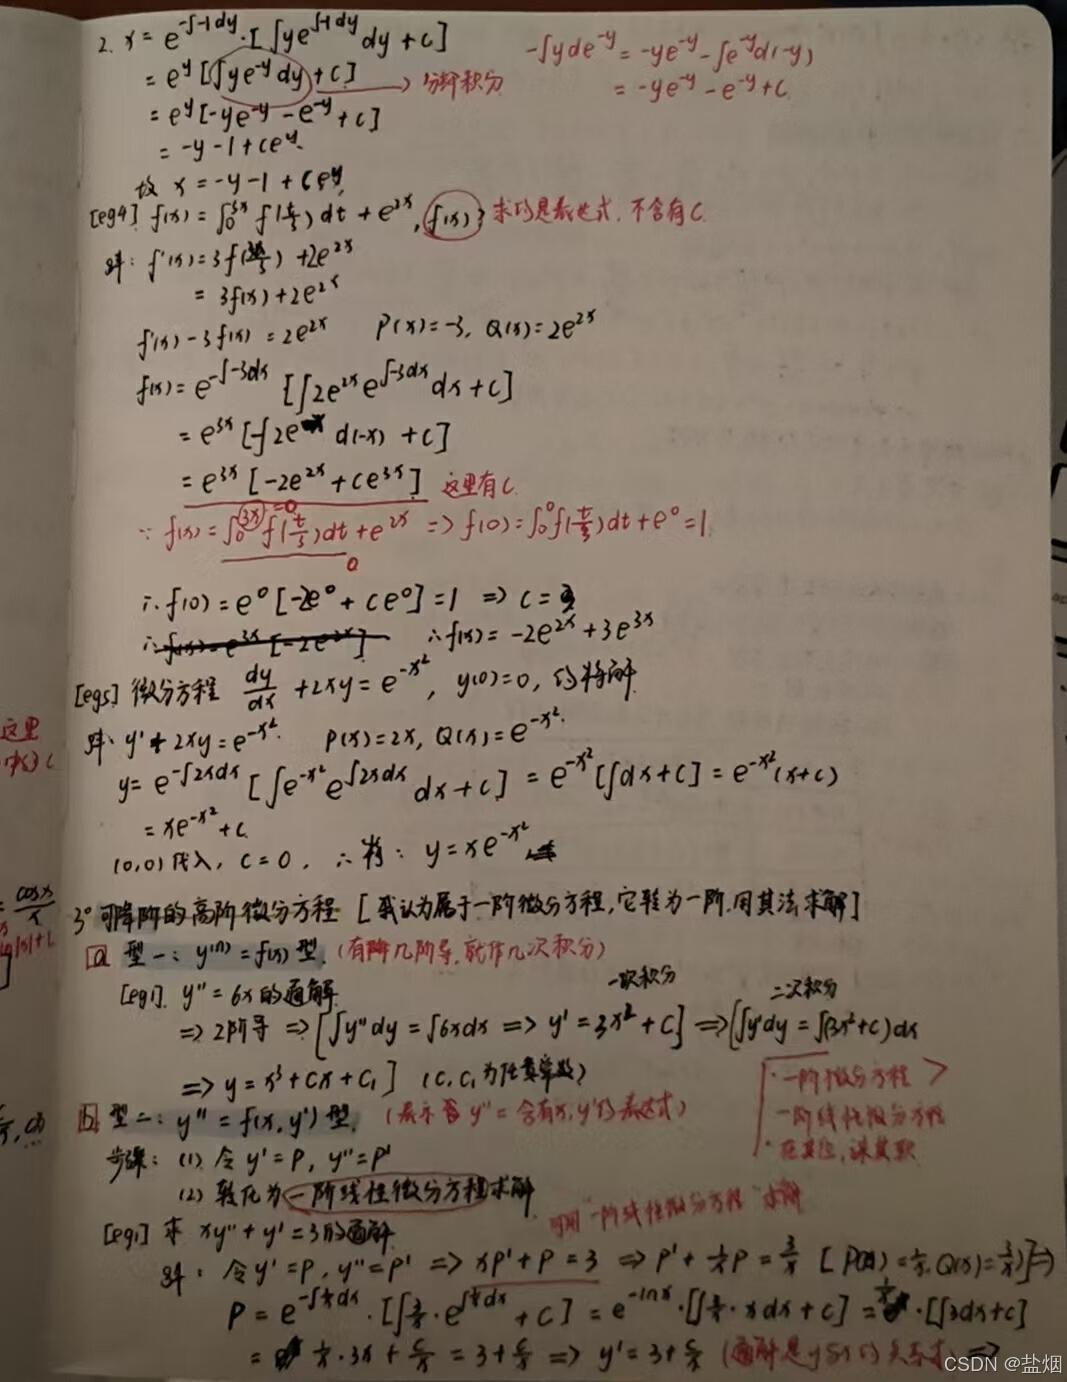 2. x = e^{-∫-1dy}·[∫ye^{∫-1dy}dy + C]
= e^y[∫ye^{-y}dy + C] → 分部积分
-∫yde^{-y} = -ye^{-y} - ∫e^{-y}d(-y)
= -ye^{-y} - e^{-y} + C
= e^y[-ye^{-y} - e^{-y} + C]
= -y - 1 + Ce^y
故 x = -y - 1 + Ce^y
[eg4] f(x) = ∫_0^{3x} f(t/3)dt + e^{2x}, f(x)? 求的是表达式,不含有C
解: f'(x) = 3f(3x/3) + 2e^{2x}
= 3f(x) + 2e^{2x}
f'(x) - 3f(x) = 2e^{2x} P(x) = -3, Q(x) = 2e^{2x}
f(x) = e^{-∫-3dx} [∫2e^{2x}e^{∫-3dx}dx + C]
= e^{3x}[-∫2e^{-x}d(-x) + C]
= e^{3x}[-2e^{2x} + Ce^{3x}] 这里有C
∵ f(x) = ∫_0^{3x} f(t/3)dt + e^{2x} ⇒ f(0) = ∫_0^0 f(t/3)dt + e^0 = 1
∴ f(0) = e^0[-2e^0 + Ce^0] = 1 ⇒ C = 3
∴ f(x) = -2e^{2x} + 3e^{3x}
[eg5] 微分方程 dy/dx + 2xy = e^{-x²}, y(0)=0, 的特解
解: y' + 2xy = e^{-x²} P(x) = 2x, Q(x) = e^{-x²}
y = e^{-∫2xdx}[∫e^{-x²}e^{∫2xdx}dx + C] = e^{-x²}[∫dx + C] = e^{-x²}(x+C)
= xe^{-x²} + C
(0,0)代入, C = 0, ∴特: y = xe^{-x²}
3° 可降阶的高阶微分方程 [我认为属于一阶微分方程,它转为一阶.用其法求解]
a 型一: y^{(n)} = f(x) 型. (有降几阶导,就作几次积分)
[eg1] y'' = 6x 的通解 一次积分 二次积分
⇒ 2阶导 ⇒ [∫y''dy = ∫6xdx ⇒ y' = 3x² + C] ⇒ [∫y'dy = ∫(3x²+C)dx
⇒ y = x³ + Cx + C₁] (C, C₁为任意常数)
b 型二: y'' = f(x, y') 型. (表示 含 y'' = 含有x, y'的表达式)
·一阶微分方程
一阶线性微分方程
·在其位,谋其职
步骤: (1) 令 y' = P, y'' = P'
(2) 转化为一阶线性微分方程求解
可用"一阶线性微分方程"求解
[eg1] 求 xy'' + y' = 3 的通解
解: 令 y' = P, y'' = P' ⇒ xP' + P = 3 ⇒ P' + 1/x P = 3/x [P(x) = 1/x, Q(x) = 3/x] ⇒
P = e^{-∫1/x dx}·[∫3/x·e^{∫1/x dx} + C] = e^{-lnx}·[∫3/x·xdx + C] = 1/x·[∫3dx + C]
= 1/x·3x + C/x = 3 + C/x ⇒ y' = 3 + C/x (通解是y与x的关系式) ⇒
这里
cosx/x
CSDN @盐烟